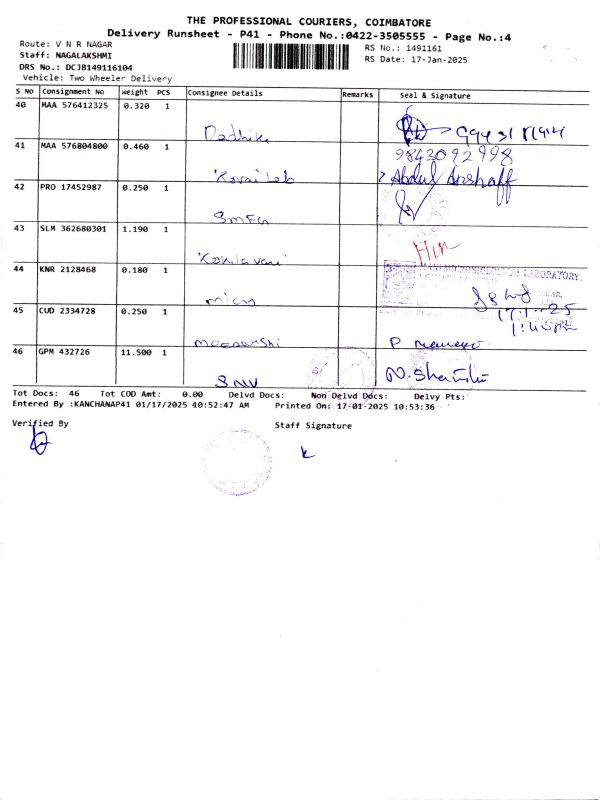 THE PROFESSIONAL COURIERS, COIMBATORE
Delivery Runsheet - P41 - Phone No.:0422-3505555 - Page No.:4
Route: V N R NAGAR
RS No.: 1491161
Staff: NAGALAKSHMI
RS Date: 17-Jan-2025
DRS No.: DCJB149116104
Vehicle: Two Wheeler Delivery
S No Consignment No Weight PCS Consignee Details Remarks Seal & Signature
40 MAA 576412325 0.320 1
41 MAA 576804800 0.460 1
9842092998
Abdul Anshaff
42 PRO 17452987 0.250 1
43 SLM 362680301 1.190 1
44 KNR 2128468 0.180 1
LABORATORY.
micro
45 CUD 2334728 0.250 1
Meenakshi
46 GPM 432726 11.500 1
SNV
Tot Docs: 46 Tot COD Amt: 0.00 Delvd Docs: Non Delvd Docs: Delvy Pts:
Entered By :KANCHANAP41 01/17/2025 40:52:47 AM Printed On: 17-01-2025 10:53:36
Verified By
Staff Signature